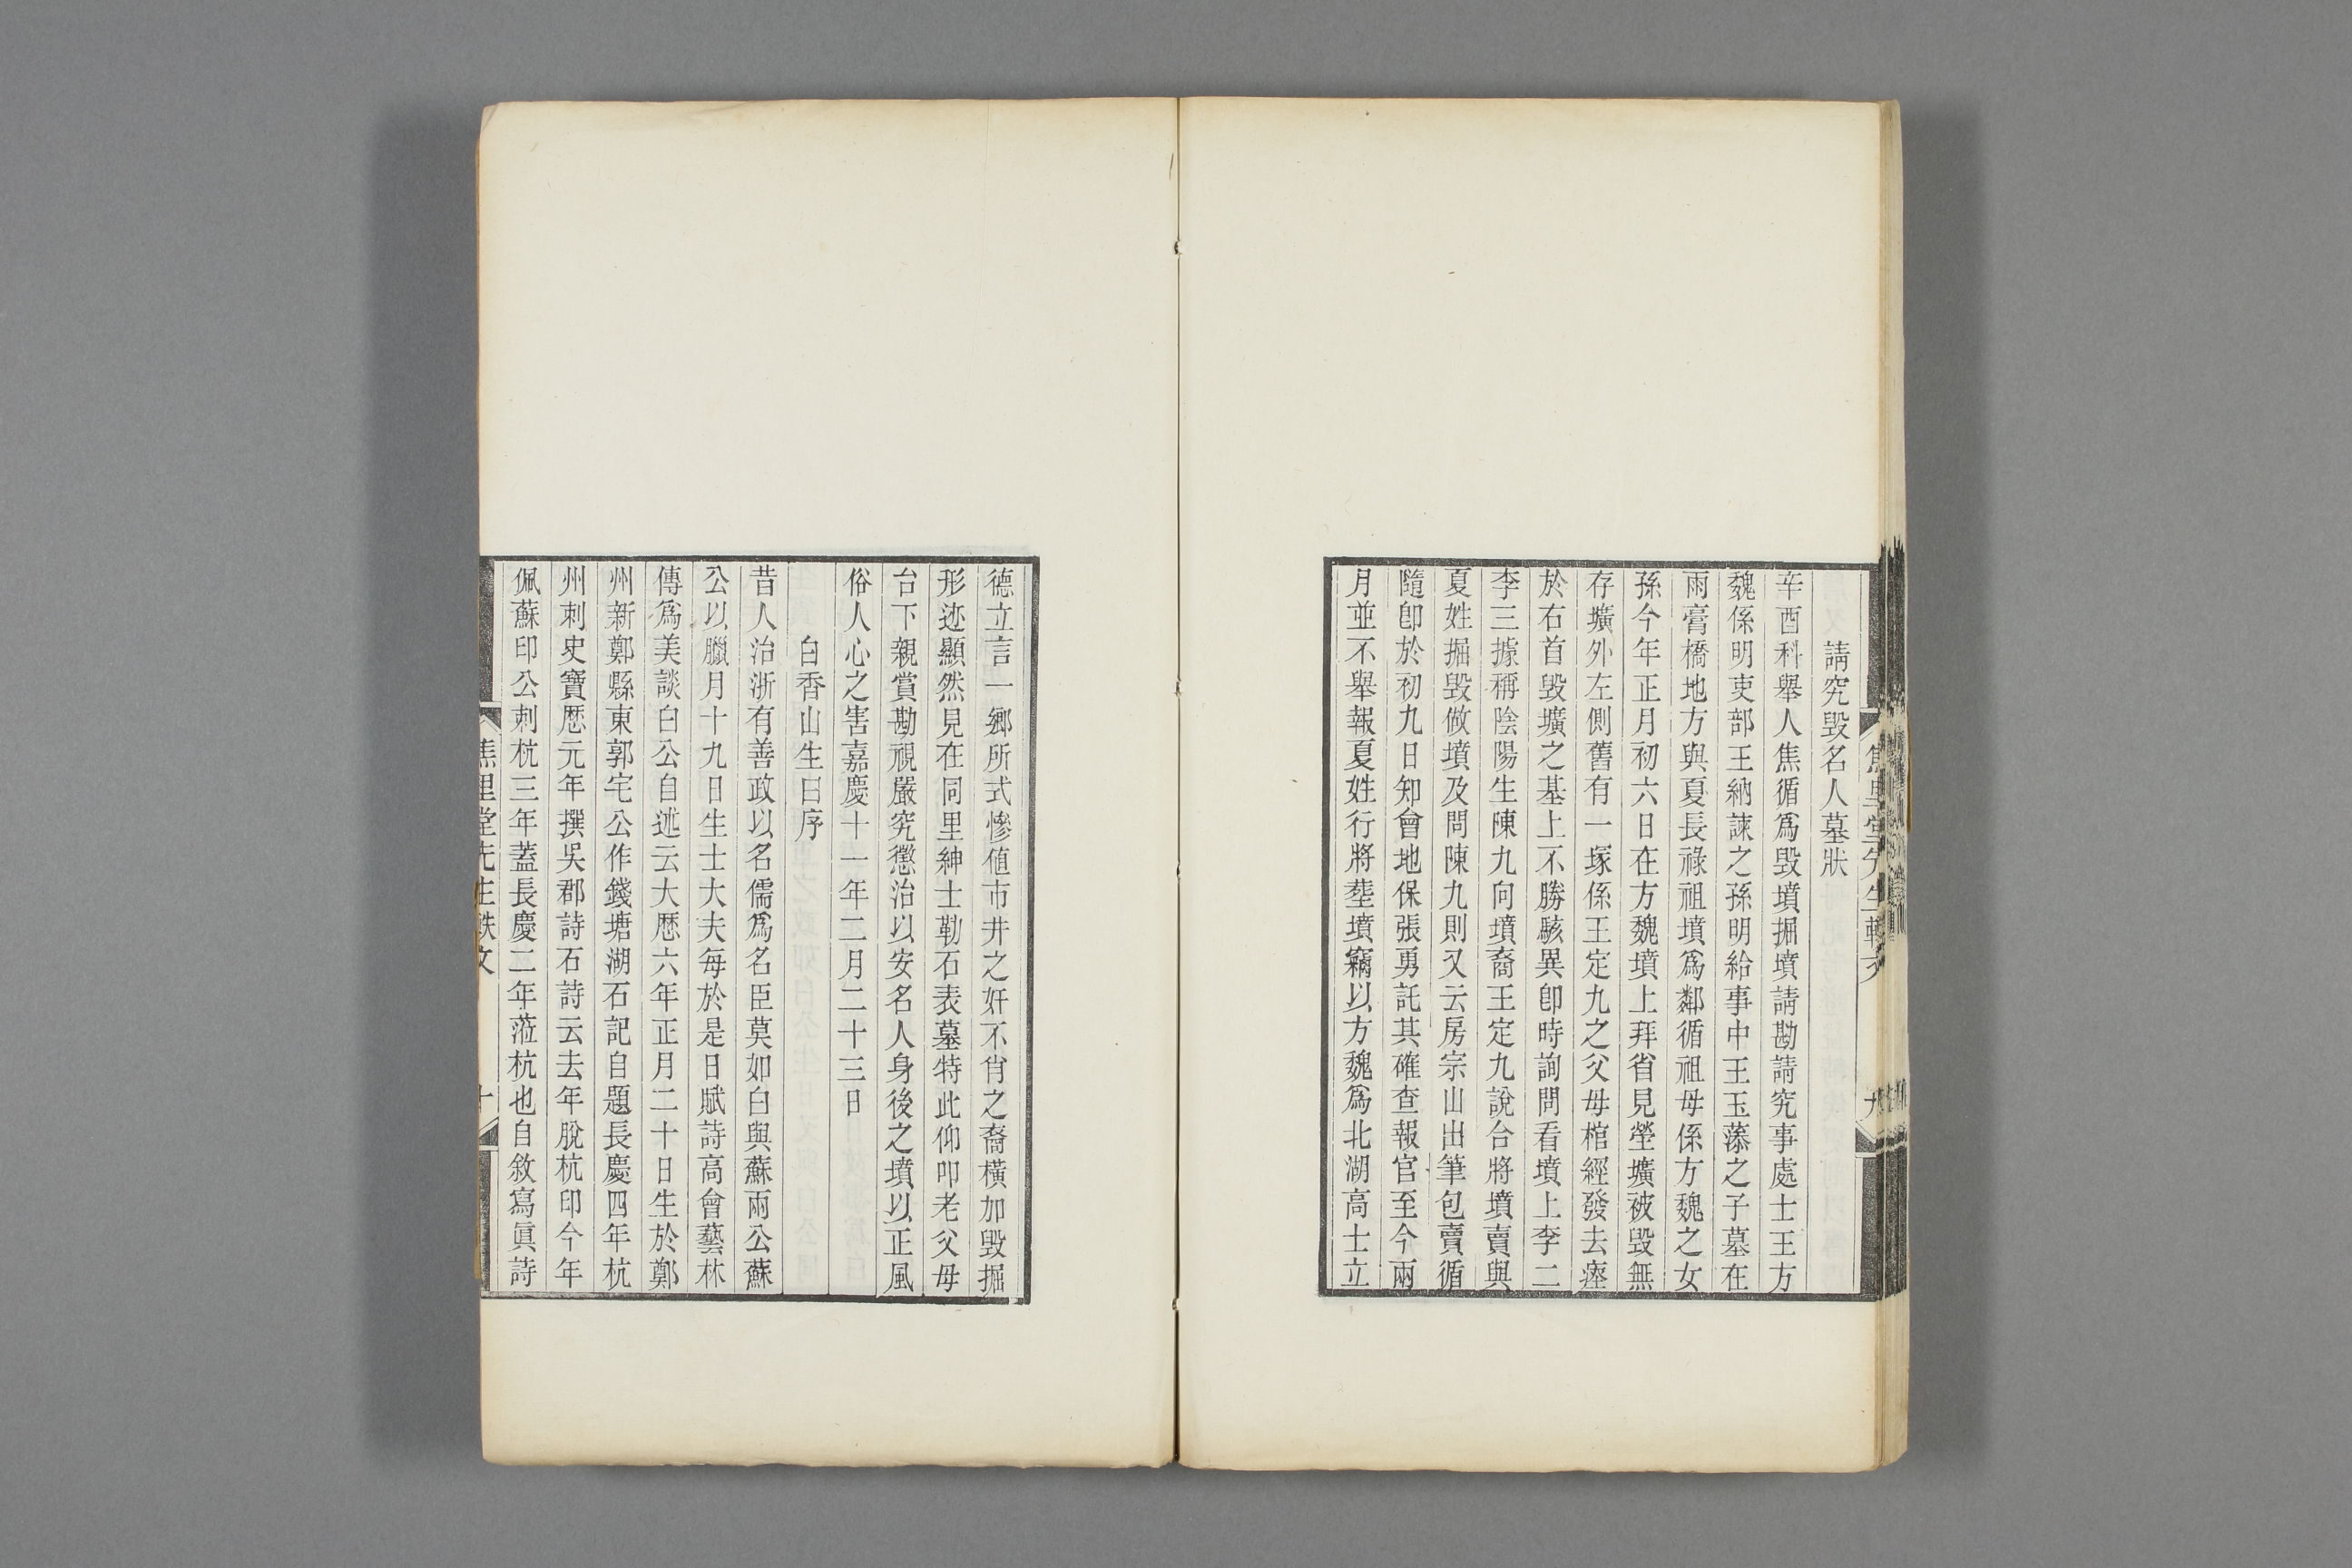 請究毀名人墓狀
辛酉科舉人焦循爲毀墳掘墳請勘請究事處士王方
魏係明吏部王納諫之孫明給事中王玉藻之子墓在
雨膏橋地方與夏長祿祖墳爲鄰循祖母係方魏之女
孫今年正月初六日在方魏墳上拜省見塋壙被毀無
存壙外左側舊有一塚係王定九之父母棺經發去瘞
於右首毀壙之基上不勝駭異卽時詢問看墳上李二
李三據稱陰陽生陳九向墳裔王定九說合將墳賣與
夏姓掘毀做墳及問陳九則又云房宗山出筆包賣循
隨卽於初九日知會地保張勇託其確查報官至今兩
月並不舉報夏姓行將塟墳竊以方魏爲北湖高士立
德立言一鄉所式慘値市井之奸不肖之裔橫加毀掘
形迹顯然見在同里紳士勒石表墓特此仰叩老父母
台下親賞勘視嚴究懲治以安名人身後之墳以正風
俗人心之害嘉慶十一年二月二十三日
白香山生日序
昔人治浙有善政以名儒爲名臣莫如白與蘇兩公蘇
公以臘月十九日生士大夫每於是日賦詩高會藝林
傳爲美談白公自述云大厯六年正月二十日生於鄭
州新鄭縣東郭宅公作錢塘湖石記自題長慶四年杭
州刺史寶厯元年撰吳郡詩石詩云去年脫杭印今年
佩蘇印公刺杭三年蓋長慶二年蒞杭也自敘寫眞詩
焦里堂先生軼文
十